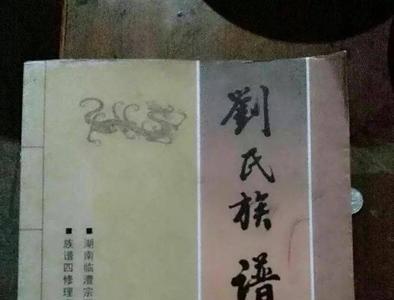 劉氏族譜
■湖南临澧宗
■族谱四修理